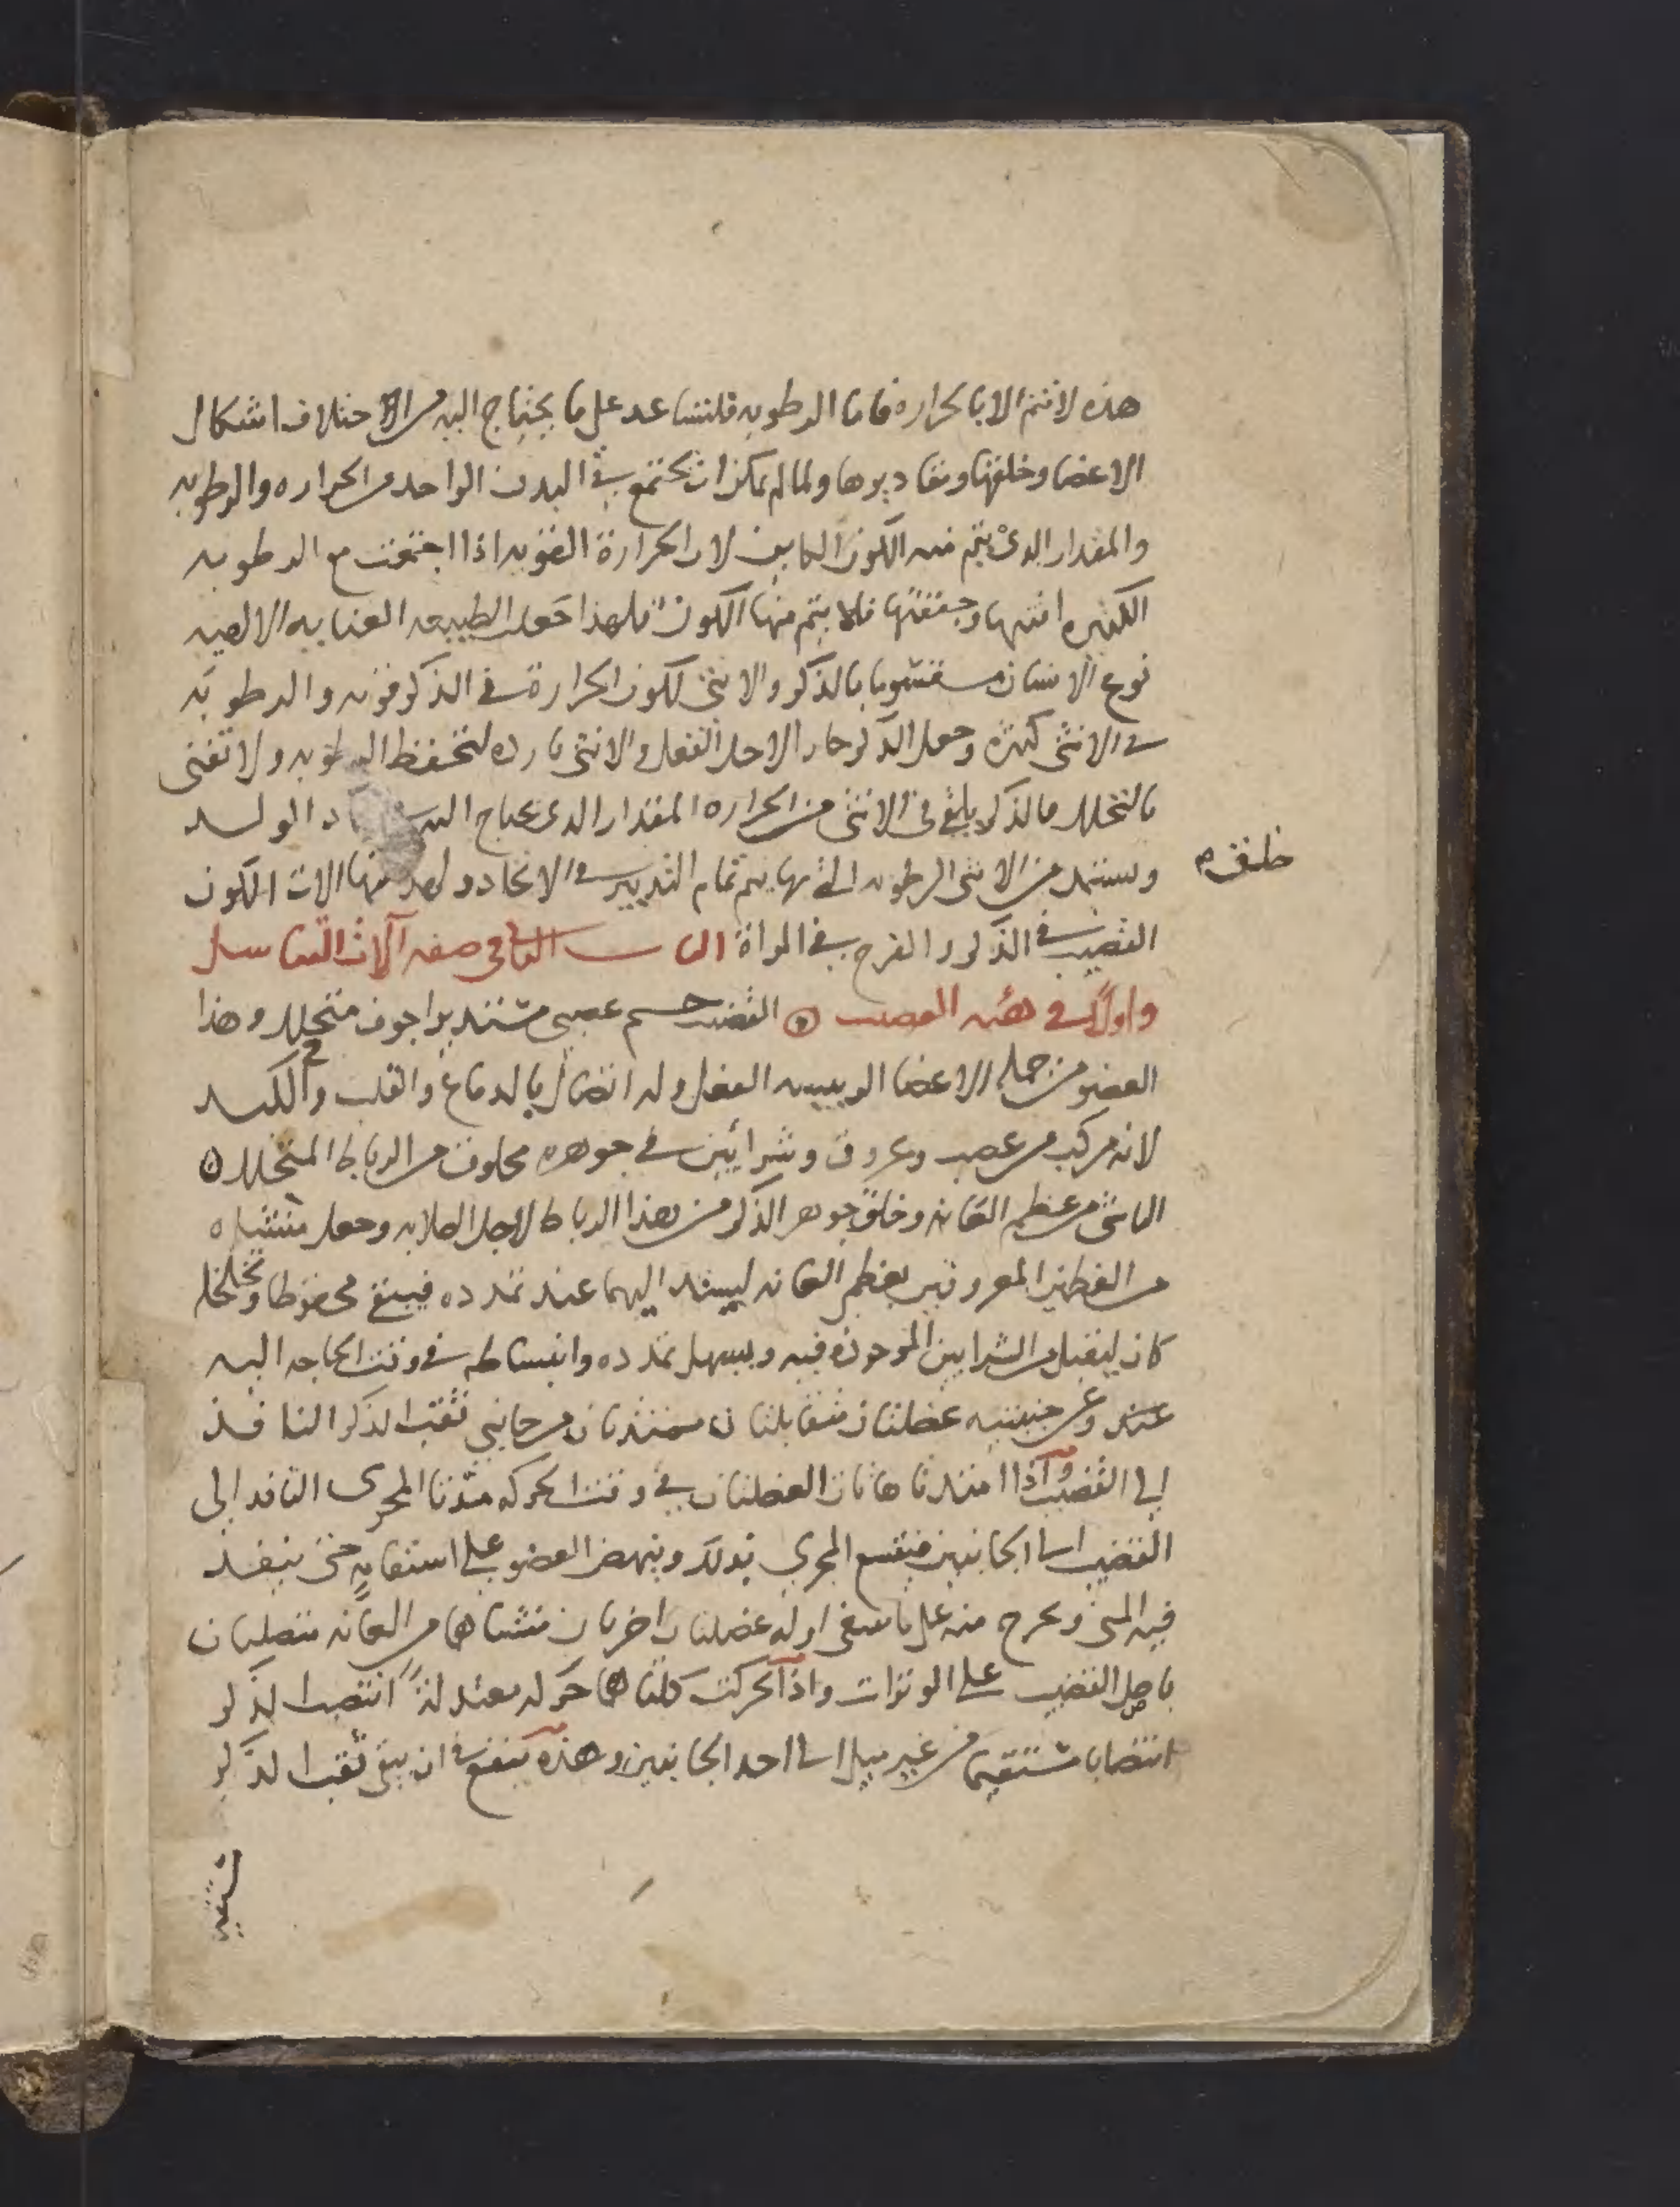 هذه لا تتم الا بالحراره فاما الرطوبه فلتساعد على ما يحتاج اليه من الاختلاف اشكال
الاعضا وخلقتها ومقاديرها ولما لم يمكن ان تجتمع في البدن الواحد من الحراره والرطوبه
والمقدار الذي يتم منه الكون الكاين لان الحرارة القويه اذا اجتمعت مع الرطوبه
الكثيره افنتها وجففتها فلا يتم منها الكون فلهذا جعلت الطبيعه العنايه الالهيه
نوع الانسان مقسوما بالذكر والانثى لكون الحرارة في الذكر قويه والرطوبه
في الانثى كثيره وجعل الذكر حار لاجل الفعل والانثى بارده لتحفظ الرطوبه ولا تفنى
بالتحلل فالذكر يلقي في الانثى من الحراره المقدار الذي يحتاج اليه الولد
ويستمد من الانثى الرطوبه التي بها يتم تمام التدبير في الاتحاد ولهذ منها الات الكون
خلقة
القضيب في الذكر والفرج في المراة الباب الثاني في صفه آلات التناسل
واولاً في هيه القضيب القضيب جسم عصبي مستدير اجوف متخلل وهذا
العضو من جمله الاعضا الرييسه الفضل وله اتصال بالدماغ والقلب والكبد
لانه مركب من عصب وعروق وشرايين في جوهره مخلوق من الرباط المتخلل
الناشئ من عظم العانه وخلق جوهر الذكر من هذا الرباط لاجل الصلابه وجعل منشاه
من العظمين المعروفين بعظم العانه ليستند اليهما عند تمدده فيبقى محفوظا وتخلخله
كان ليقبل من الشرايين الموجوده فيه ويسهل تمدده وانبساطه في وقت الحاجه اليه
عند وعن جنبتيه عضلتان متقابلتان ممتدتان من جانبي ثقب الذكر النافذ
الى القضيب واذا امتدتا هاتان العضلتان في وقت الحركه مددتا المجرى النافد الى
القضيب الى الجانبين فيتسع المجرى بذلك وينهض العضو على استقامه حتى ينفذ
فيه المني ويخرج منه على ما ينبغي او له عضلتان اخريان منشاهما من العانه متصلتان
باصل القضيب على الوترات واذا تحركت كلتاهما حركه معتدلةً انتصب الذكر
انتصابا مستقيما من غير ميل الى احد الجانبين وهذه ينفع في ان يبقى ثقب الذكر